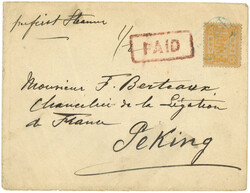 per first Steamer
1/2
PAID
Monsieur F. Berteaux
Chancelier de la Légation
de France
Peking